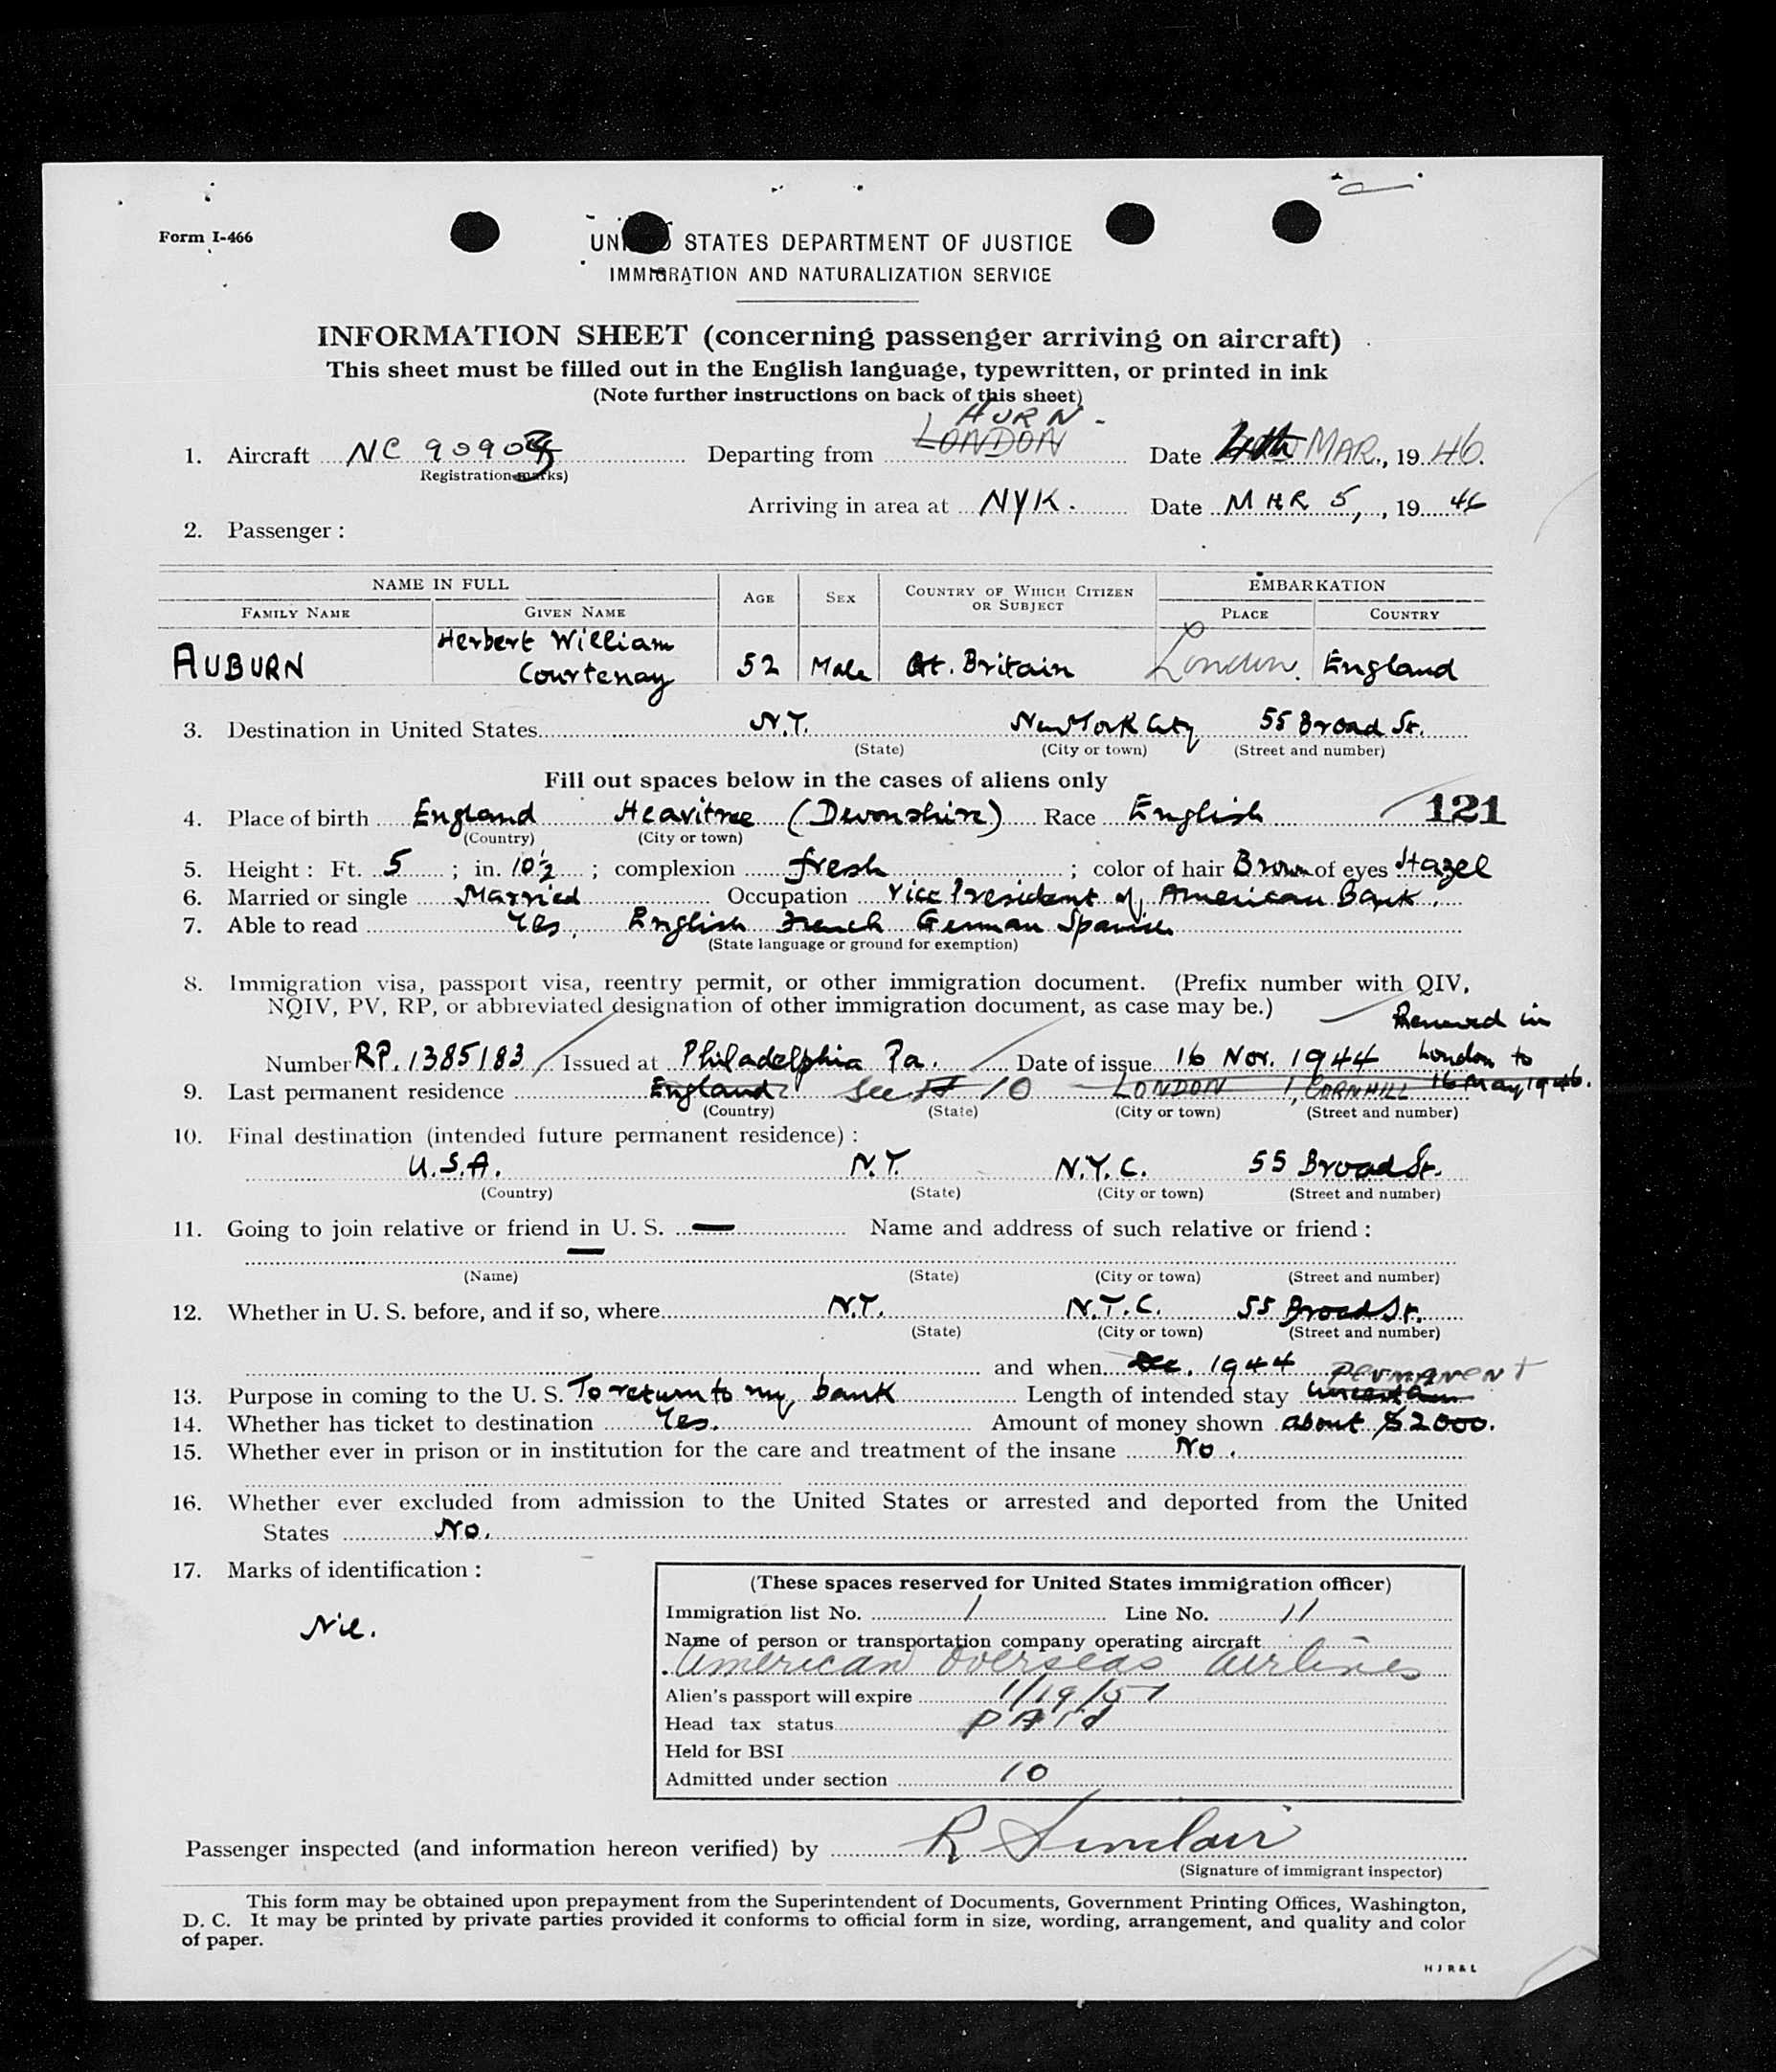 Form I-466
UNITED STATES DEPARTMENT OF JUSTICE
IMMIGRATION AND NATURALIZATION SERVICE
INFORMATION SHEET (concerning passenger arriving on aircraft)
This sheet must be filled out in the English language, typewritten, or printed in ink
(Note further instructions on back of this sheet)
HURN -
1. Aircraft NC 9090 Departing from LONDON Date 4th MAR., 19 46.
Registration marks)
Arriving in area at NYK. Date MAR 5, , 19 46
2. Passenger :
NAME IN FULL AGE SEX COUNTRY OF WHICH CITIZEN OR SUBJECT EMBARKATION
FAMILY NAME GIVEN NAME PLACE COUNTRY
Herbert William
AUBURN Courtenay 52 Male Gt. Britain London. England
3. Destination in United States N.Y. New York City 55 Broad St.
(State) (City or town) (Street and number)
Fill out spaces below in the cases of aliens only
4. Place of birth England Heavitree (Devonshire) Race English 121
(Country) (City or town)
5. Height : Ft. 5 ; in. 10½ ; complexion fresh ; color of hair Brown of eyes Hazel
6. Married or single Married Occupation Vice President of American Bank.
7. Able to read Yes, English French German Spanish
(State language or ground for exemption)
8. Immigration visa, passport visa, reentry permit, or other immigration document. (Prefix number with QIV,
NQIV, PV, RP, or abbreviated designation of other immigration document, as case may be.)
Renewed in
Number RP. 1385183 Issued at Philadelphia Pa. Date of issue 16 Nov. 1944 London to
16 May 1946.
9. Last permanent residence England See # 10 LONDON 1, CORNHILL
(Country) (State) (City or town) (Street and number)
10. Final destination (intended future permanent residence) :
U.S.A. N.Y. N.Y.C. 55 Broad St.
(Country) (State) (City or town) (Street and number)
11. Going to join relative or friend in U. S. — Name and address of such relative or friend :
—
(Name) (State) (City or town) (Street and number)
12. Whether in U. S. before, and if so, where N.Y. N.Y.C. 55 Broad St.
(State) (City or town) (Street and number)
and when Dec. 1944 permanent
13. Purpose in coming to the U. S. To return to my bank Length of intended stay uncertain
14. Whether has ticket to destination Yes. Amount of money shown about $2000.
15. Whether ever in prison or in institution for the care and treatment of the insane No.
16. Whether ever excluded from admission to the United States or arrested and deported from the United
States No.
17. Marks of identification :
Nil.
(These spaces reserved for United States immigration officer)
Immigration list No. 1 Line No. 11
Name of person or transportation company operating aircraft
American Overseas Airlines
Alien's passport will expire 1/19/51
Head tax status PAid
Held for BSI
Admitted under section 10
Passenger inspected (and information hereon verified) by R Sinclair
(Signature of immigrant inspector)
This form may be obtained upon prepayment from the Superintendent of Documents, Government Printing Offices, Washington,
D. C. It may be printed by private parties provided it conforms to official form in size, wording, arrangement, and quality and color
of paper.
H J R & L